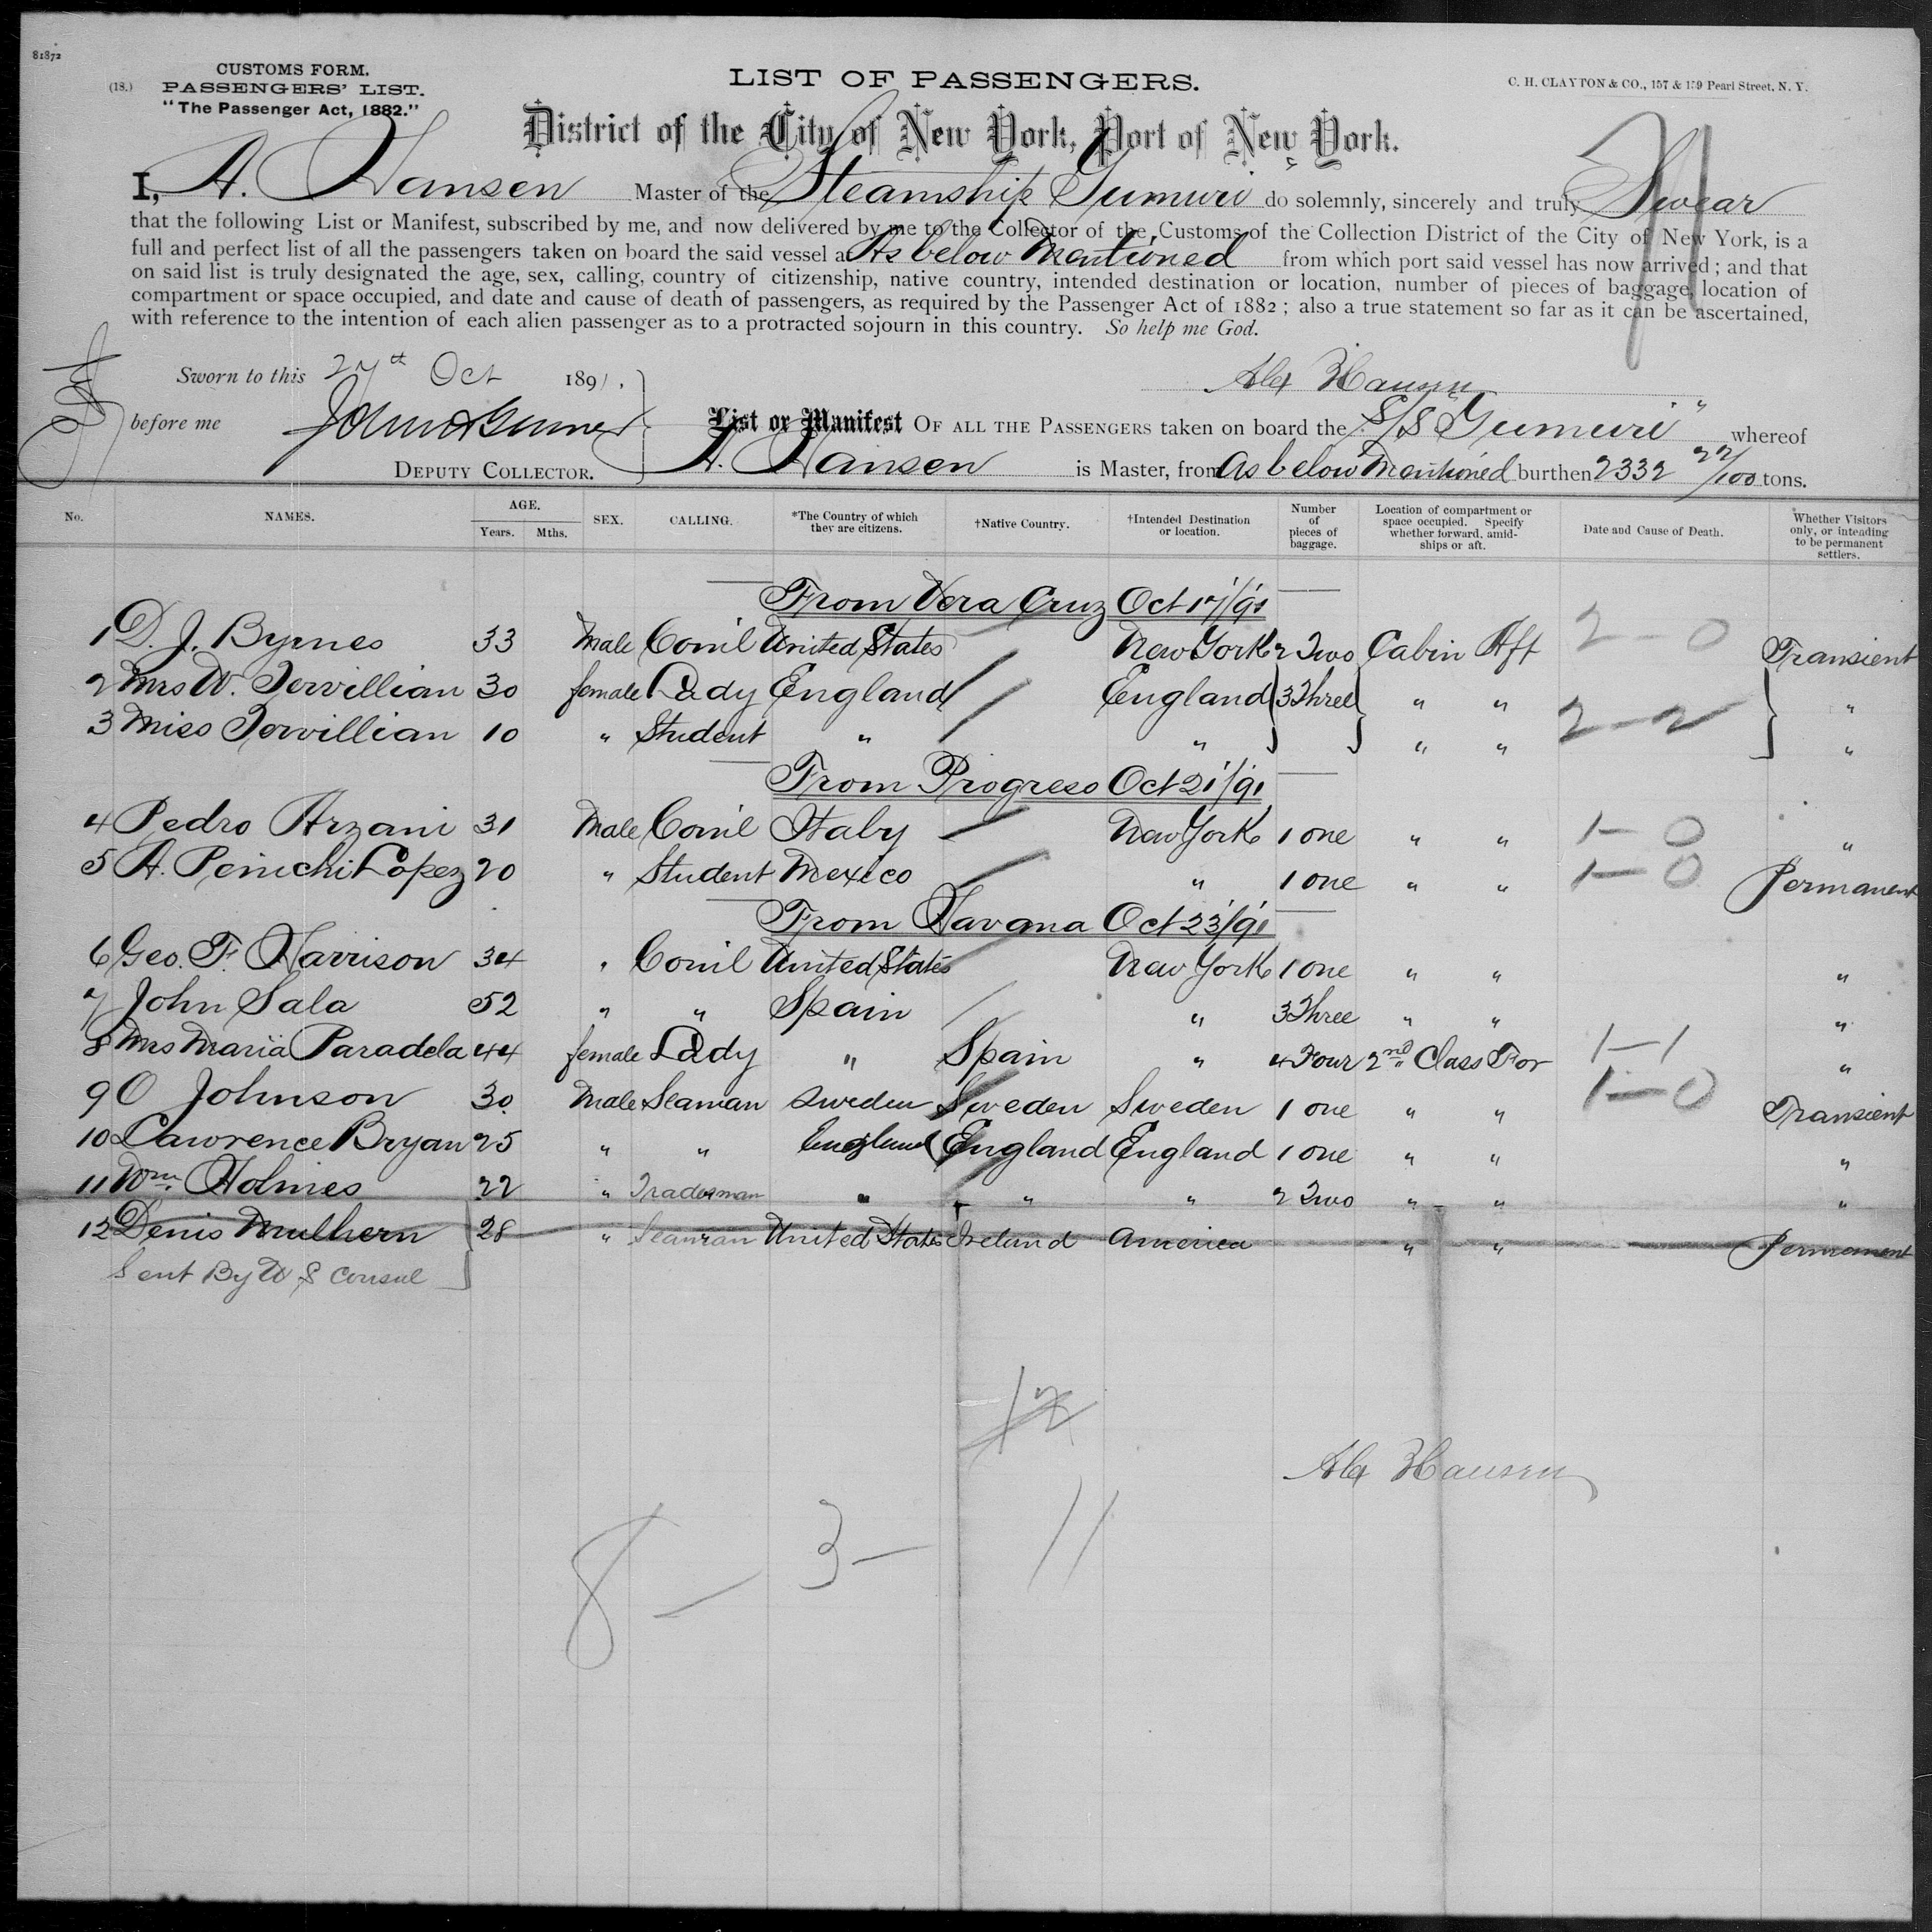 81872
(18.)
CUSTOMS FORM.
PASSENGERS' LIST.
"The Passenger Act, 1882."
LIST OF PASSENGERS.
C. H. CLAYTON & CO., 157 & 159 Pearl Street, N. Y.
District of the City of New York, Port of New York.
I, A. Hansen Master of the Steamship Yumuri do solemnly, sincerely and truly Swear
that the following List or Manifest, subscribed by me, and now delivered by me to the Collector of the Customs of the Collection District of the City of New York, is a
full and perfect list of all the passengers taken on board the said vessel at As below Mentioned from which port said vessel has now arrived; and that
on said list is truly designated the age, sex, calling, country of citizenship, native country, intended destination or location, number of pieces of baggage, location of
compartment or space occupied, and date and cause of death of passengers, as required by the Passenger Act of 1882; also a true statement so far as it can be ascertained,
with reference to the intention of each alien passenger as to a protracted sojourn in this country. So help me God.
Sworn to this 27th Oct 1891.
Alex Hansen
before me
List or Manifest OF ALL THE PASSENGERS taken on board the S/S Yumuri" whereof
DEPUTY COLLECTOR.
A. Hansen is Master, from As below Mentioned burthen 2332 22/100 tons.
No. NAMES. AGE. Years. Mths. SEX. CALLING. *The Country of which they are citizens. †Native Country. †Intended Destination or location. Number of pieces of baggage. Location of compartment or space occupied. Specify whether forward, amidships or aft. Date and Cause of Death. Whether Visitors only, or intending to be permanent settlers.
From Vera Cruz Oct 17/'91
1 D. J. Byrnes 33 Male Coml United States New York 2 Two Cabin Aft 2 - 0 Transient
2 Mrs W. Tervillian 30 female Lady England England 3 Three " " 2 - 2 "
3 Miss Tervillian 10 " Student " " " " "
From Progreso Oct 21/'91
4 Pedro Arzani 31 Male Coml Italy New York 1 one " " 1 - 0 "
5 A. Peniche Lopez 20 " Student Mexico " 1 one " " 1 - 0 Permanent
From Havana Oct 23/'91
6 Geo. F. Harrison 34 " Coml United States New York 1 one " " "
7 John Sala 52 " " Spain " 3 Three " " "
8 Mrs Maria Paradela 44 female Lady " Spain " 4 Four 2nd Class For 1 - 1 "
9 O Johnson 30 Male Seaman Sweden Sweden Sweden 1 one " " 1 - 0 Transient
10 Lawrence Bryan 25 " " England England England 1 one " " "
11 Wm. Holmes 22 " Tradesman " " " 2 Two " " "
12 Denis Mulhern 28 " Seaman United States Ireland America " " Permanent
Sent By U S Consul
12
Alex Hansen
8 - 3 - 11